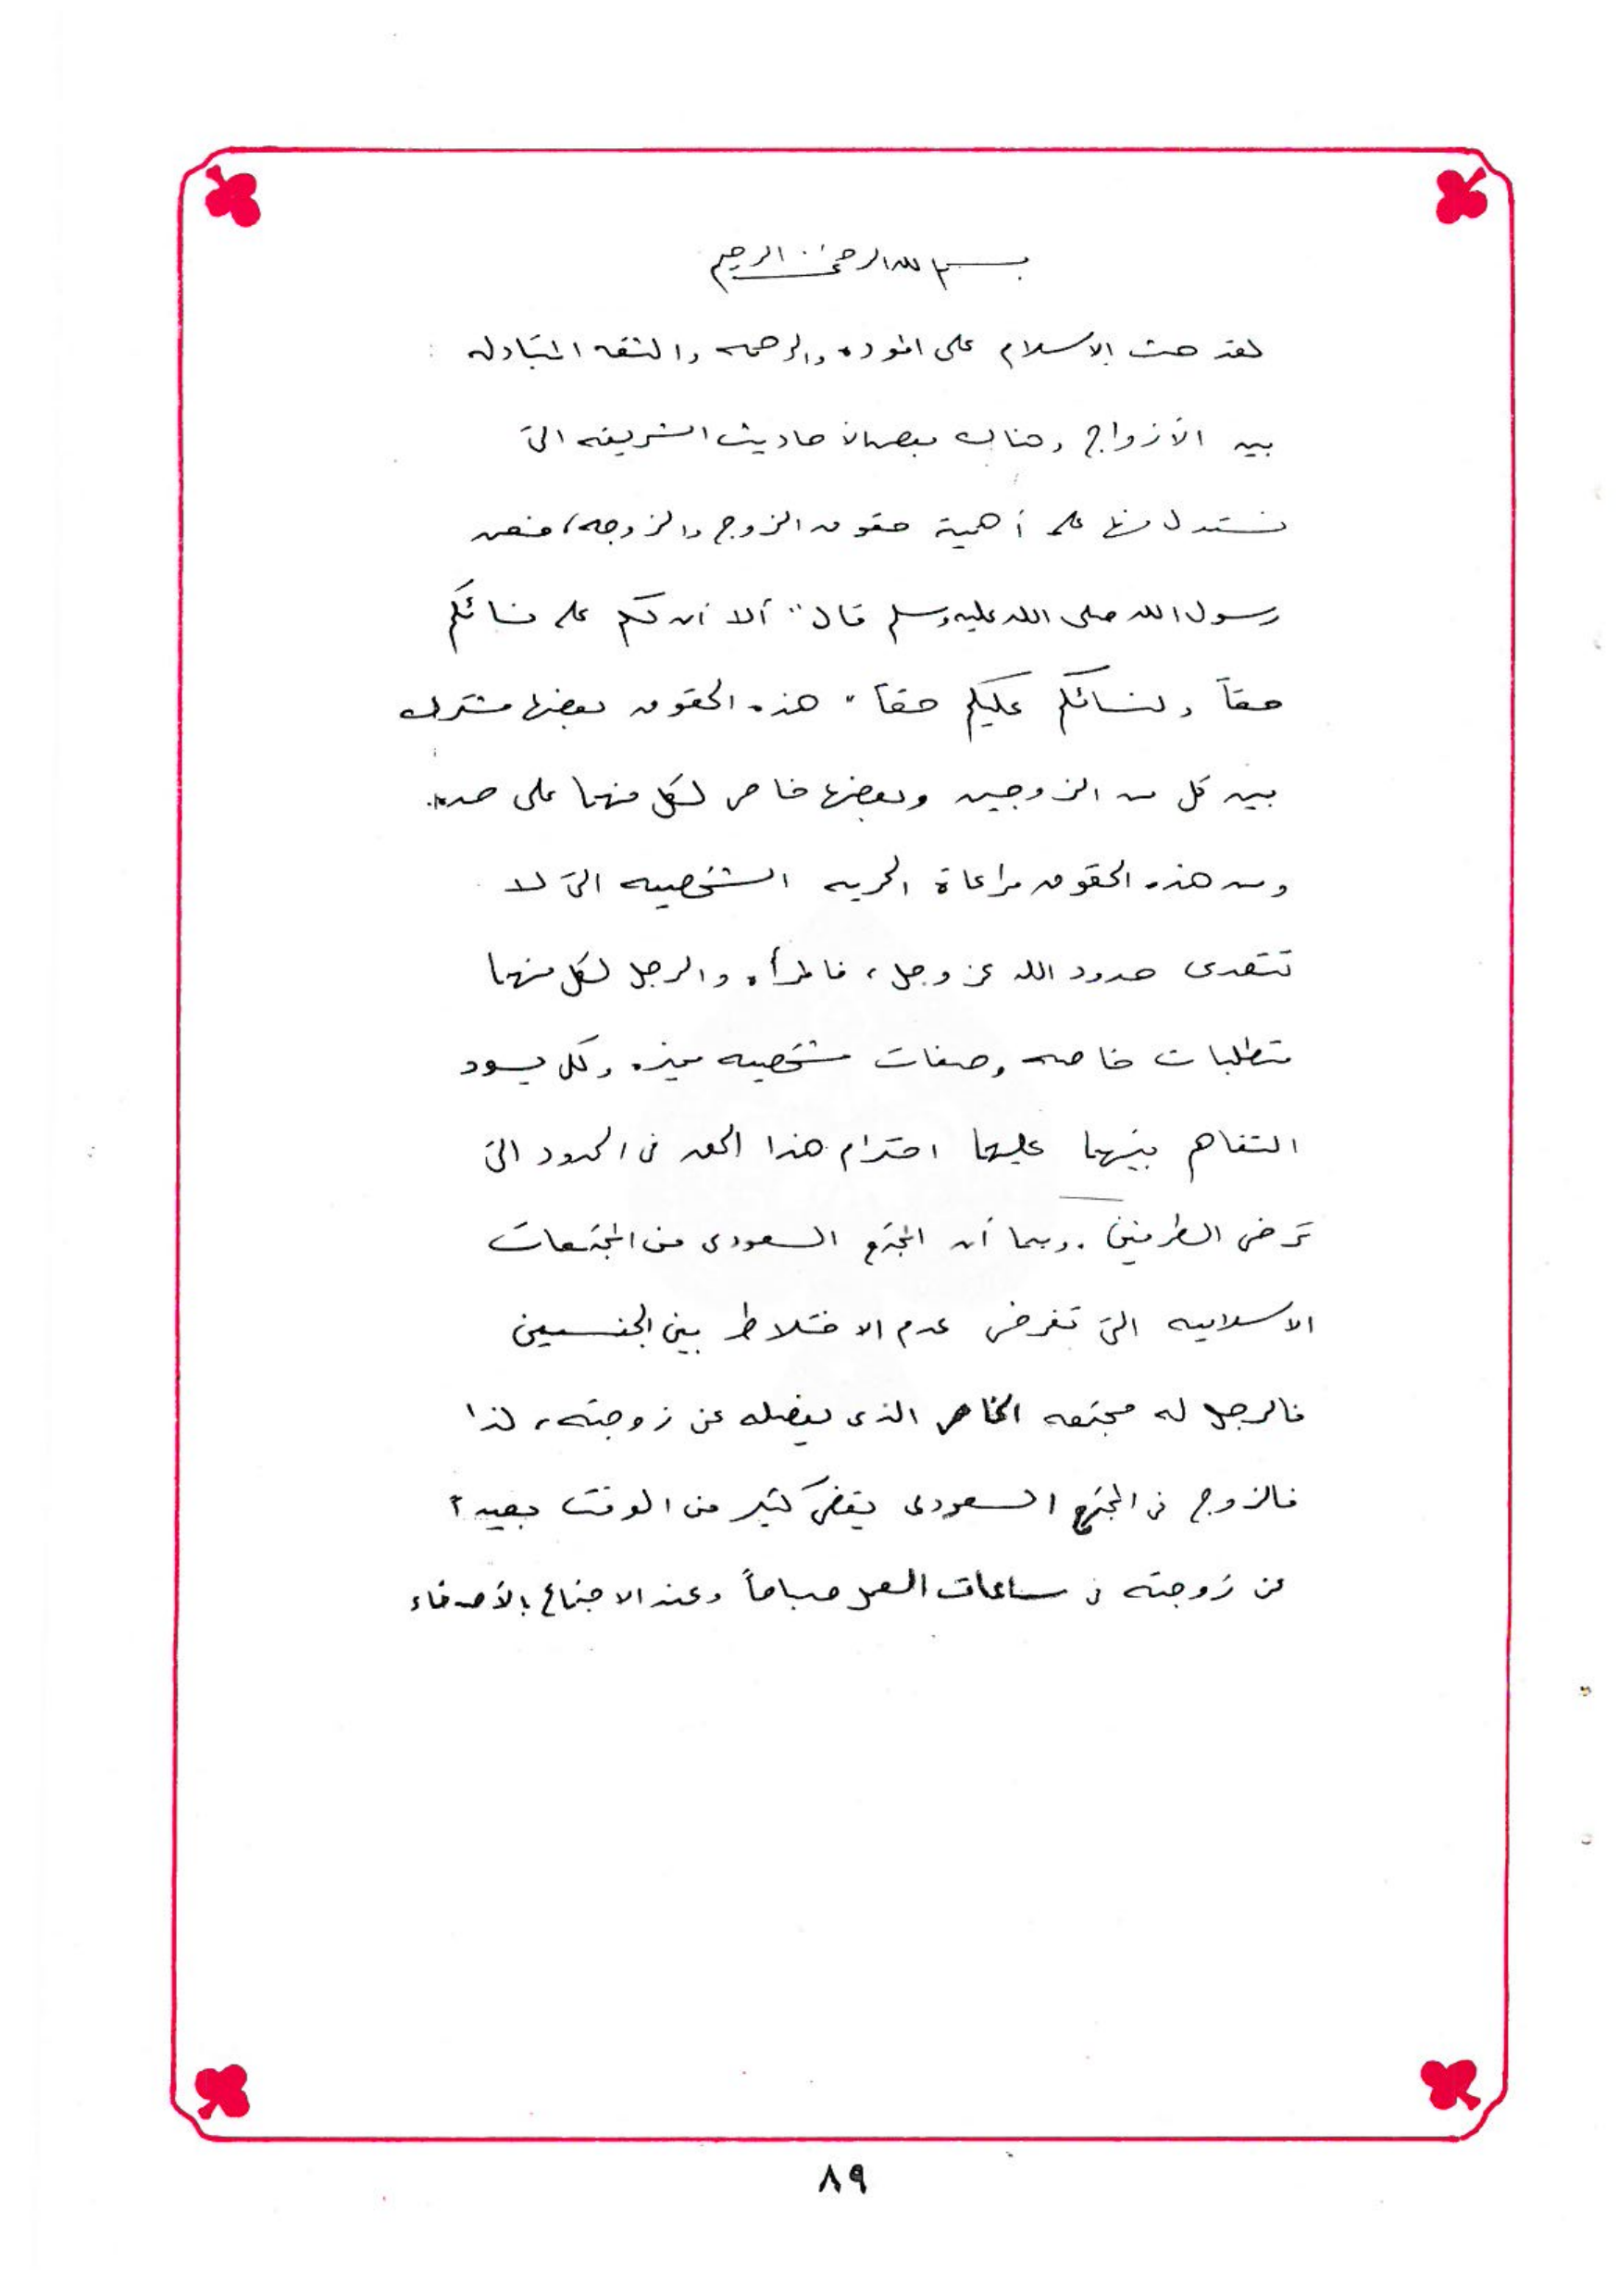 بسم الله الرحمن الرحيم
لقد حث الاسلام على الموده والرحمه والثقه المتبادله :
بين الأزواج وهناك بعض الأحاديث الشريفه التي
نستدل منها على أهمية حقوق الزوج والزوجه، فنص
رسول الله صلى الله عليه وسلم قال " ألا أن لكم على نسائكم
حقاً ولنسائكم عليكم حقاً " هذه الحقوق بعضها مشترك
بين كل من الزوجين وبعضها خاص لكل منهما على حده.
ومن هذه الحقوق مراعاة الحريه الشخصيه التي لا
تتعدى حدود الله عز وجل ، فالمرأه والرجل لكل منهما
متطلبات خاصه وصفات شخصيه مميزه ولكى يسود
التفاهم بينهما عليهما احترام هذا الحق فى الحدود التي
ترضى الطرفين . وبما أن المجتمع السعودى من المجتمعات
الاسلاميه التي تفرض عدم الاختلاط بين الجنسين
فالرجل له مجتمعه الخاص الذى يفصله عن زوجته ، لذا
فالزوج فى المجتمع السعودى يقضى كثير من الوقت بعيداً
عن زوجته فى ساعات العمل صباحاً وعند الاجتماع بالأصدقاء
٨٩